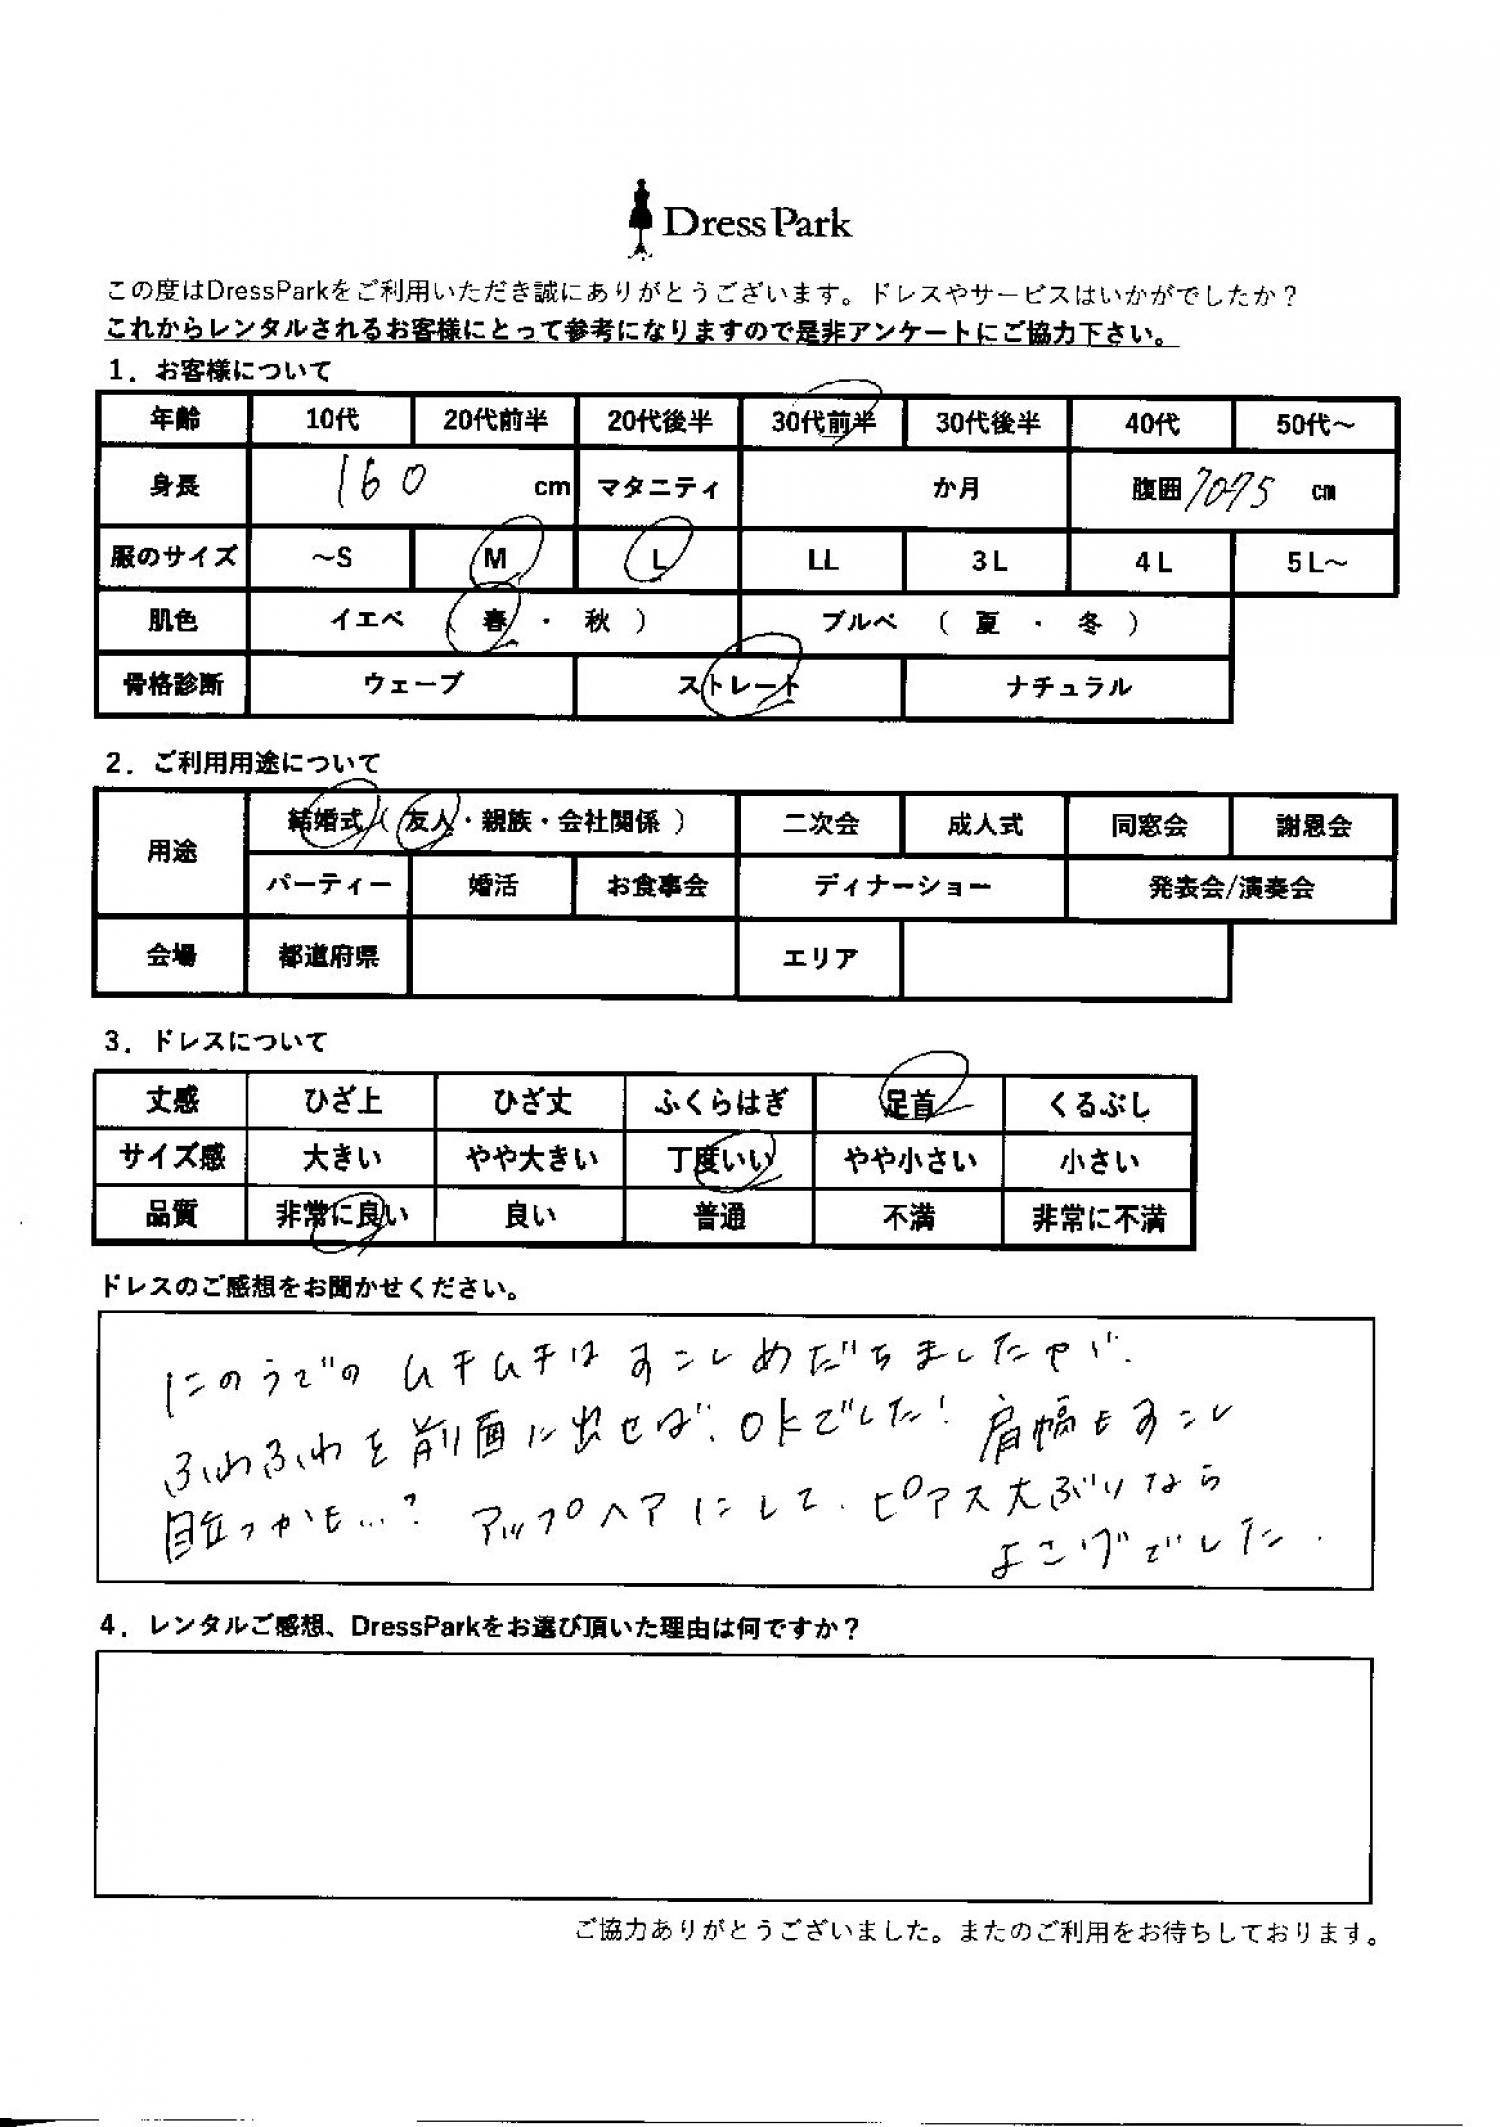 Dress Park
この度はDressParkをご利用いただき誠にありがとうございます。ドレスやサービスはいかがでしたか？
これからレンタルされるお客様にとって参考になりますので是非アンケートにご協力下さい。
1．お客様について
年齢 10代 20代前半 20代後半 30代前半 30代後半 40代 50代～
身長 160 cm マタニティ か月 腹囲 70-75 cm
服のサイズ ～S M L LL 3L 4L 5L～
肌色 イエベ （ 春 ・ 秋 ） ブルベ （ 夏 ・ 冬 ）
骨格診断 ウェーブ ストレート ナチュラル
2．ご利用用途について
用途 結婚式（ 友人・親族・会社関係 ） 二次会 成人式 同窓会 謝恩会
パーティー 婚活 お食事会 ディナーショー 発表会/演奏会
会場 都道府県 エリア
3．ドレスについて
丈感 ひざ上 ひざ丈 ふくらはぎ 足首 くるぶし
サイズ感 大きい やや大きい 丁度いい やや小さい 小さい
品質 非常に良い 良い 普通 不満 非常に不満
ドレスのご感想をお聞かせください。
にのうでの ムチムチは すこし めだちましたが、
ふわふわを前面に出せば、OKでした! 肩幅もすこし
目立つかも…? アップヘアにして、ピアス大ぶりなら
よさげでした.
4．レンタルご感想、DressParkをお選び頂いた理由は何ですか？
ご協力ありがとうございました。またのご利用をお待ちしております。